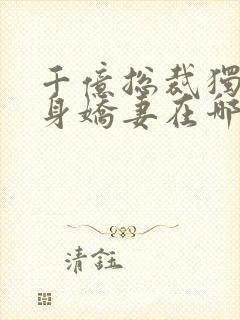 千億總裁獨
身嬌妻在哪
清鈺